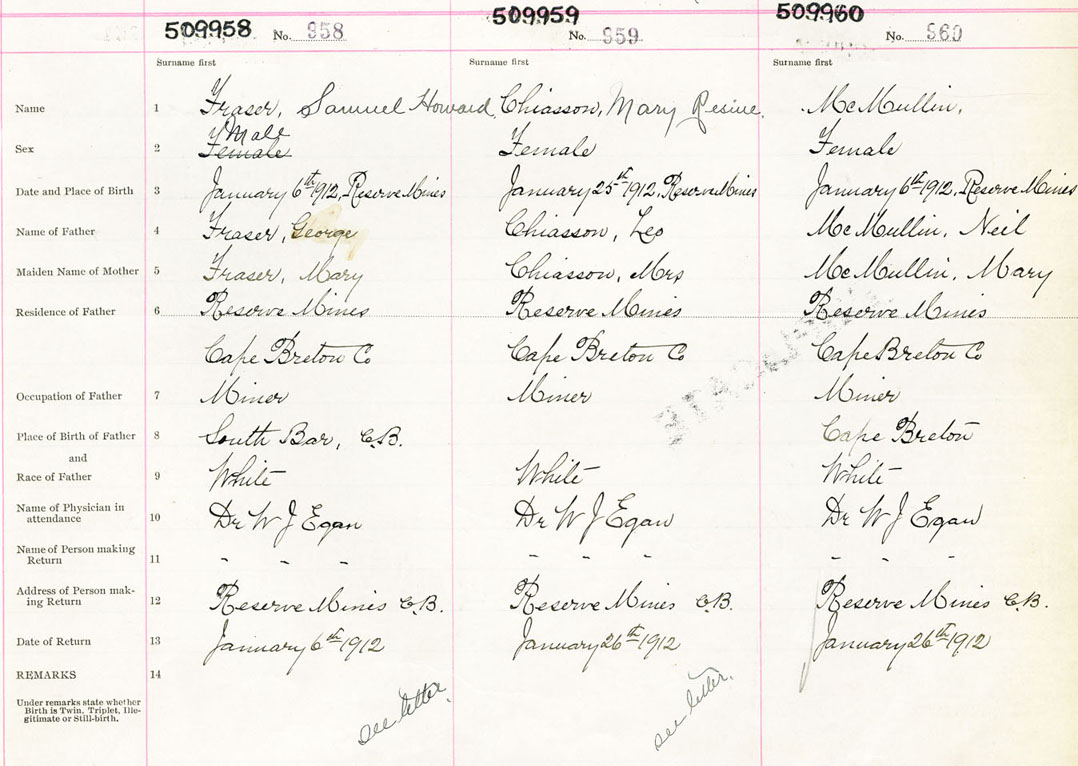 509958 509959 509960
No. 958 No. 959 No. 960
Surname first Surname first Surname first
Name 1 Fraser, Samuel Howard Chiasson, Mary McMullin,
Male
Sex 2 Female Female Female
Date and Place of Birth 3 January 6th 1912, Reserve Mines January 25th 1912, Reserve Mines January 6th 1912, Reserve Mines
Name of Father 4 Fraser, George Chiasson, Leo McMullin, Neil
Maiden Name of Mother 5 Fraser, Mary Chiasson, Mrs McMullin, Mary
Residence of Father 6 Reserve Mines Reserve Mines Reserve Mines
Cape Breton Co Cape Breton Co Cape Breton Co
Occupation of Father 7 Miner Miner Miner
Place of Birth of Father 8 South Bar, C.B. Cape Breton
and
Race of Father 9 White White White
Name of Physician in
attendance 10 Dr W J Egan Dr W J Egan Dr W J Egan
Name of Person making
Return 11 - - - - - - - - -
Address of Person mak-
ing Return 12 Reserve Mines C.B. Reserve Mines C.B. Reserve Mines C.B.
Date of Return 13 January 6th 1912 January 26th 1912 January 26th 1912
REMARKS 14
Under remarks state whether
Birth is Twin, Triplet, Ille-
gitimate or Still-birth.
see letter. see letter.